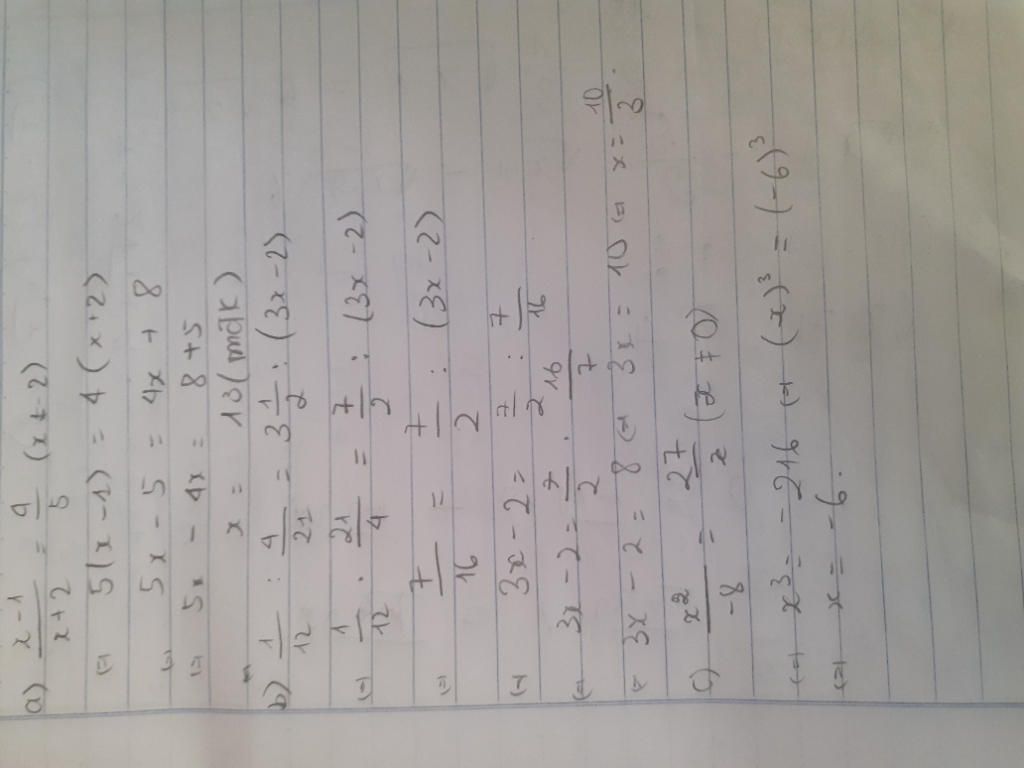 a) (x-1)/(x+2) = 4/5 (x ≠ -2)
(=) 5(x-1) = 4(x+2)
(=) 5x - 5 = 4x + 8
(=) 5x - 4x = 8 + 5
x = 13 (mđk)
b) 1/12 : 4/21 = 3 1/2 : (3x-2)
(=) 1/12 . 21/4 = 7/2 : (3x-2)
(=) 7/16 = 7/2 : (3x-2)
(=) 3x-2 = 7/2 : 7/16
(= 3x-2 = 7/2 . 16/7
(= 3x-2 = 8 (=) 3x = 10 (=) x = 10/3.
c) x²/-8 = 27/x (x ≠ 0)
(=) x³ = -216 (=) (x)³ = (-6)³
(=) x = -6.